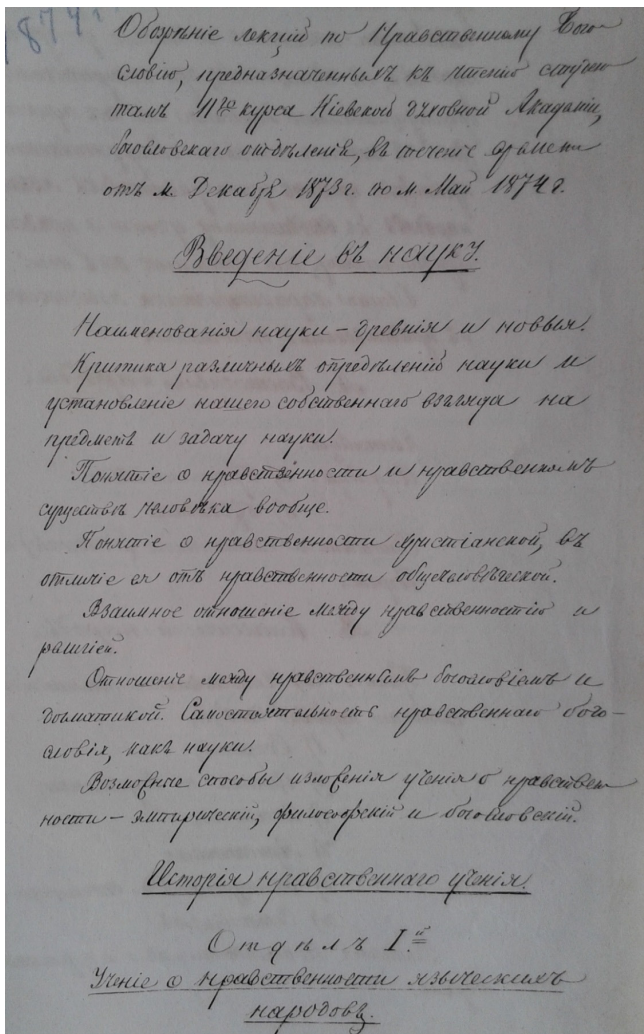 1874
Обозрѣніе лекцій по Нравственному Бого-
словію, предназначенныхъ къ чтенію студен-
тамъ курса Кіевской духовной Академіи,
богословскаго отдѣленія, въ теченіе времени
отъ м. Декабря 1873 г. по м. Май 1874 г.
Введеніе въ науку.
Наименованія науки – древнія и новыя.
Критика различныхъ опредѣленій науки и
установленіе нашего собственнаго взгляда на
предметъ и задачу науки.
Понятіе о нравственности и нравственномъ
существѣ человѣка вообще.
Понятіе о нравственности христіанской, въ
отличіе ея отъ нравственности общечеловѣческой.
Взаимное отношеніе между нравственностію и
религіей.
Отношеніе между нравственнымъ богословіемъ и
догматикой. Самостоятельность нравственнаго бого-
словія, какъ науки.
Возможные способы изложенія ученія о нравствен
ности – эмпирическій, философскій и богословскій.
Исторія нравственнаго ученія.
Отдѣлъ I.й
Ученіе о нравственности языческихъ
народовъ.